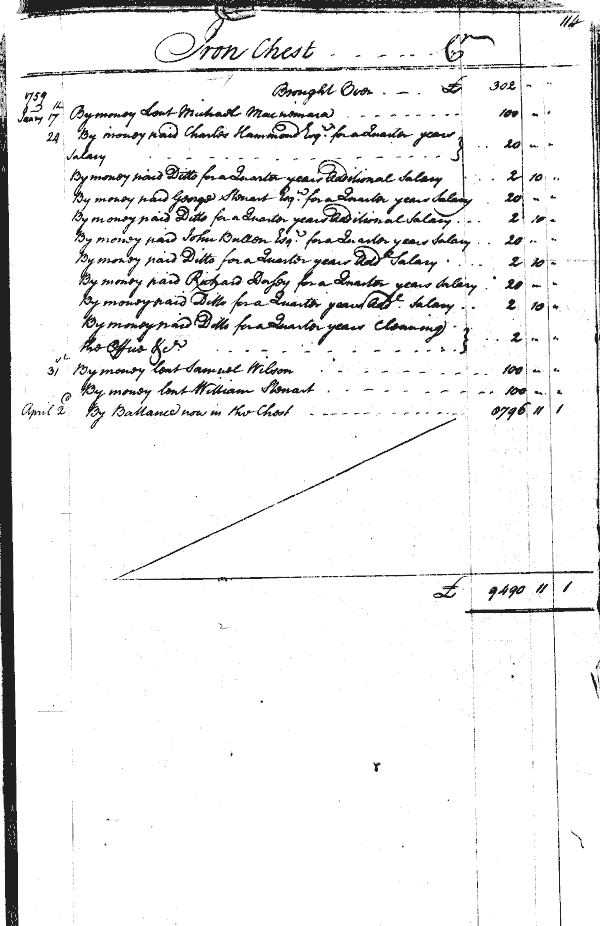 114
Iron Chest - - - - - Cr
Brought Over - - - £ 302 " "
1759
Janry 17th By money Lent Michael Macnemara - - - - - 100 " "
24 By money paid Charles Hammond Esqr. for a Quarter years
Salary - - - - - } 20 " "
By money paid Ditto for a Quarter years Additional Salary - - 2 10 "
By money paid George Steuart Esqr. for a Quarter years Salary - - 20 " "
By money paid Ditto for a Quarter years Additional Salary - - 2 10 "
By money paid John Bullen Esqr. for a Quarter years Salary - - 20 " "
By money paid Ditto for a Quarter years Addl. Salary - - 2 10 "
By money paid Richard Dorsey for a Quarter years Salary - - 20 " "
By money paid Ditto for a Quarter years Addl. Salary - - 2 10 "
By money paid Ditto for a Quarter years Cleaning
the Office &c. - - - - - } 2 " "
31st By money lent Samuel Wilson - - - - - 100 " "
By money lent William Steuart - - - - - 100 " "
April 2d By Ballance now in the Chest - - - - - 8796 11 1
£ 9490 11 1